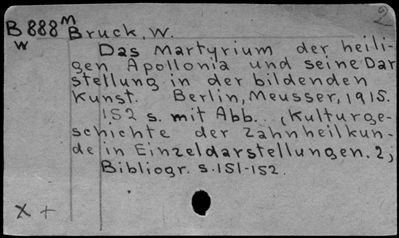 2
B888m Bruck, W.
w
Das Martyrium der heili-
gen Apollonia und seine Dar
stellung in der bildenden
Kunst. Berlin, Meusser, 1915.
152 s. mit Abb. (Kulturge-
schichte der Zahnheilkun-
de in Einzeldarstellungen. 2;
Bibliogr. s. 151-152.
x +